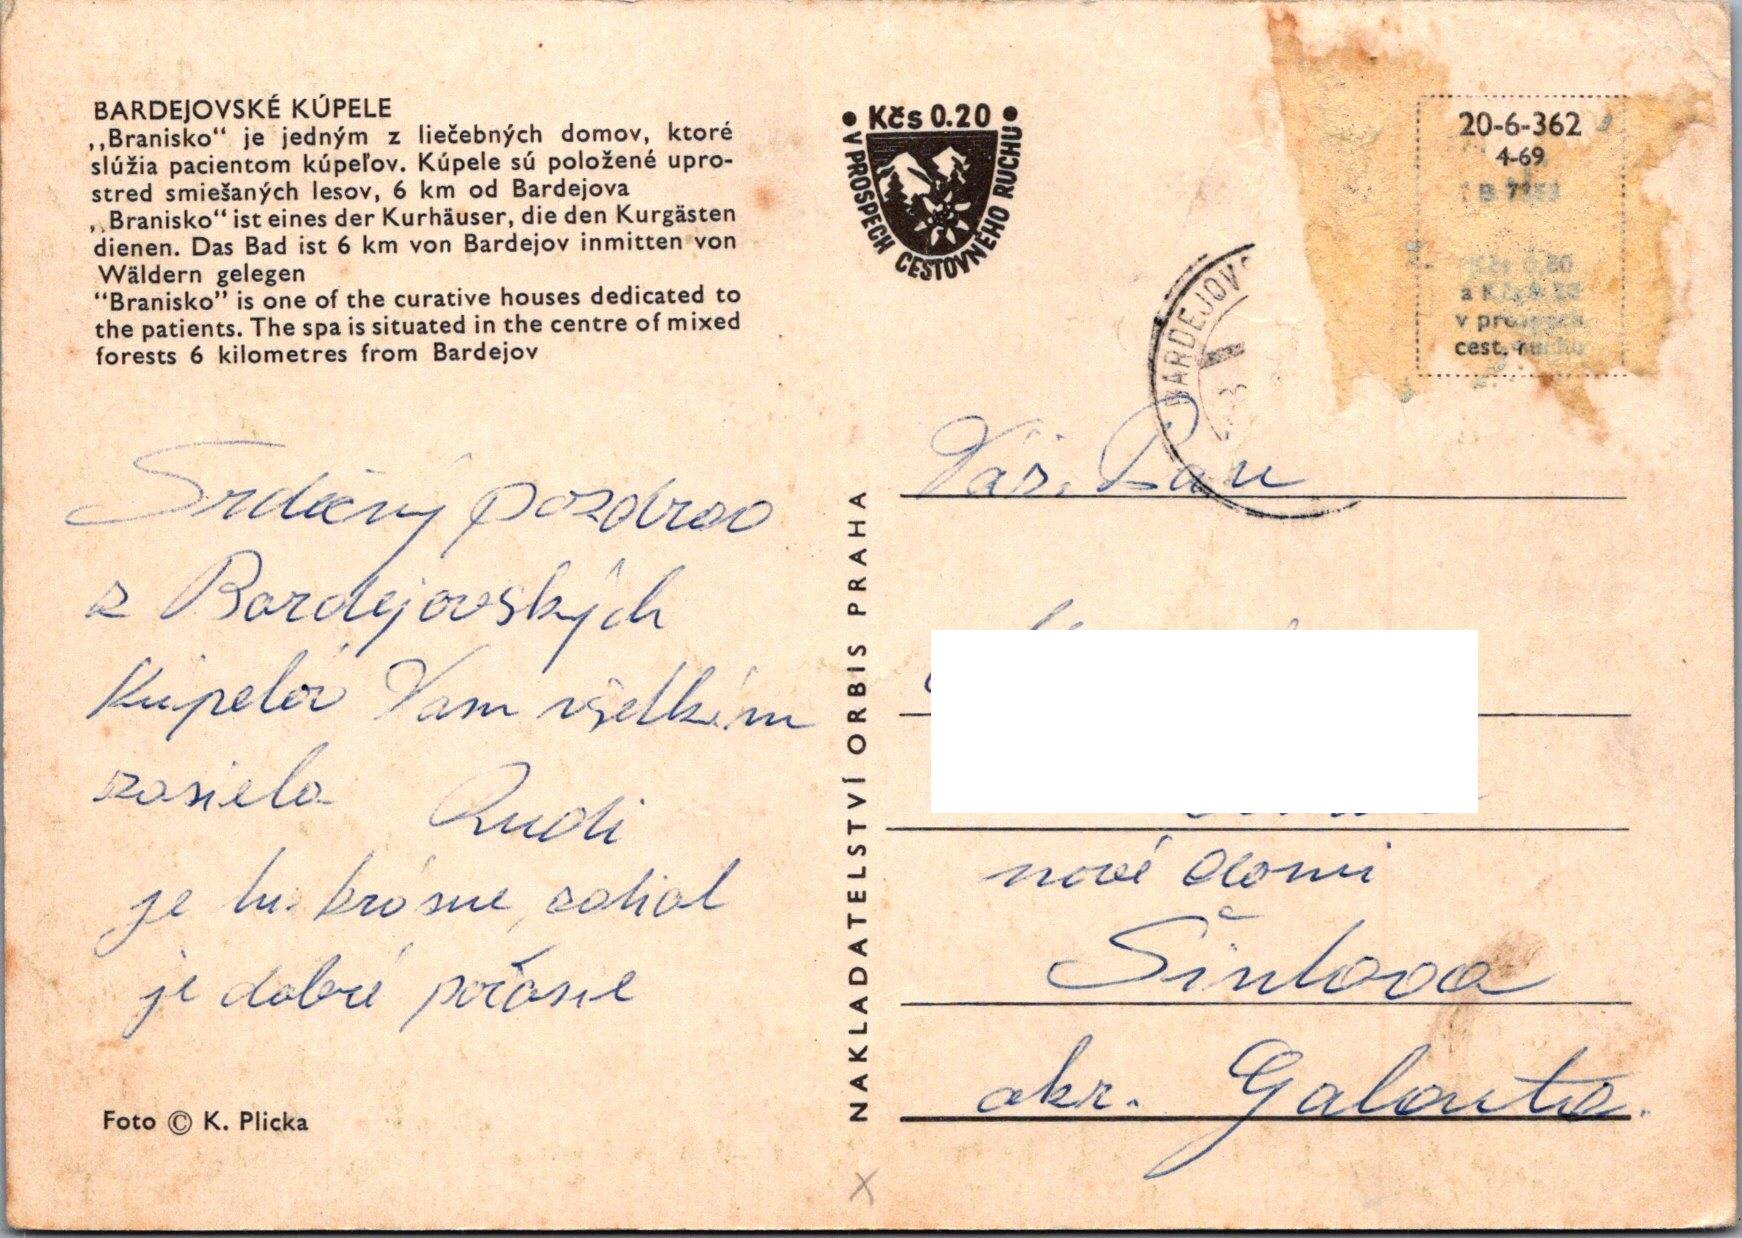 BARDEJOVSKÉ KÚPELE
„Branisko“ je jedným z liečebných domov, ktoré
slúžia pacientom kúpeľov. Kúpele sú položené upro-
stred smiešaných lesov, 6 km od Bardejova
„Branisko“ ist eines der Kurhäuser, die den Kurgästen
dienen. Das Bad ist 6 km von Bardejov inmitten von
Wäldern gelegen
“Branisko” is one of the curative houses dedicated to
the patients. The spa is situated in the centre of mixed
forests 6 kilometres from Bardejov
• Kčs 0.20 •
V PROSPECH CESTOVNÉHO RUCHU
20-6-362
4-69
v prospech
cest. ruchu
BARDEJOV
Srdečný pozdrav
z Bardejovských
Kúpelóv Vam všetkím
zasiela Rudi
je tu krásne, zatial
je dobré počasie
Foto © K. Plicka
NAKLADATELSTVÍ ORBIS PRAHA
Váž. Pan
nové domi
Šintava
okr. Galanta.